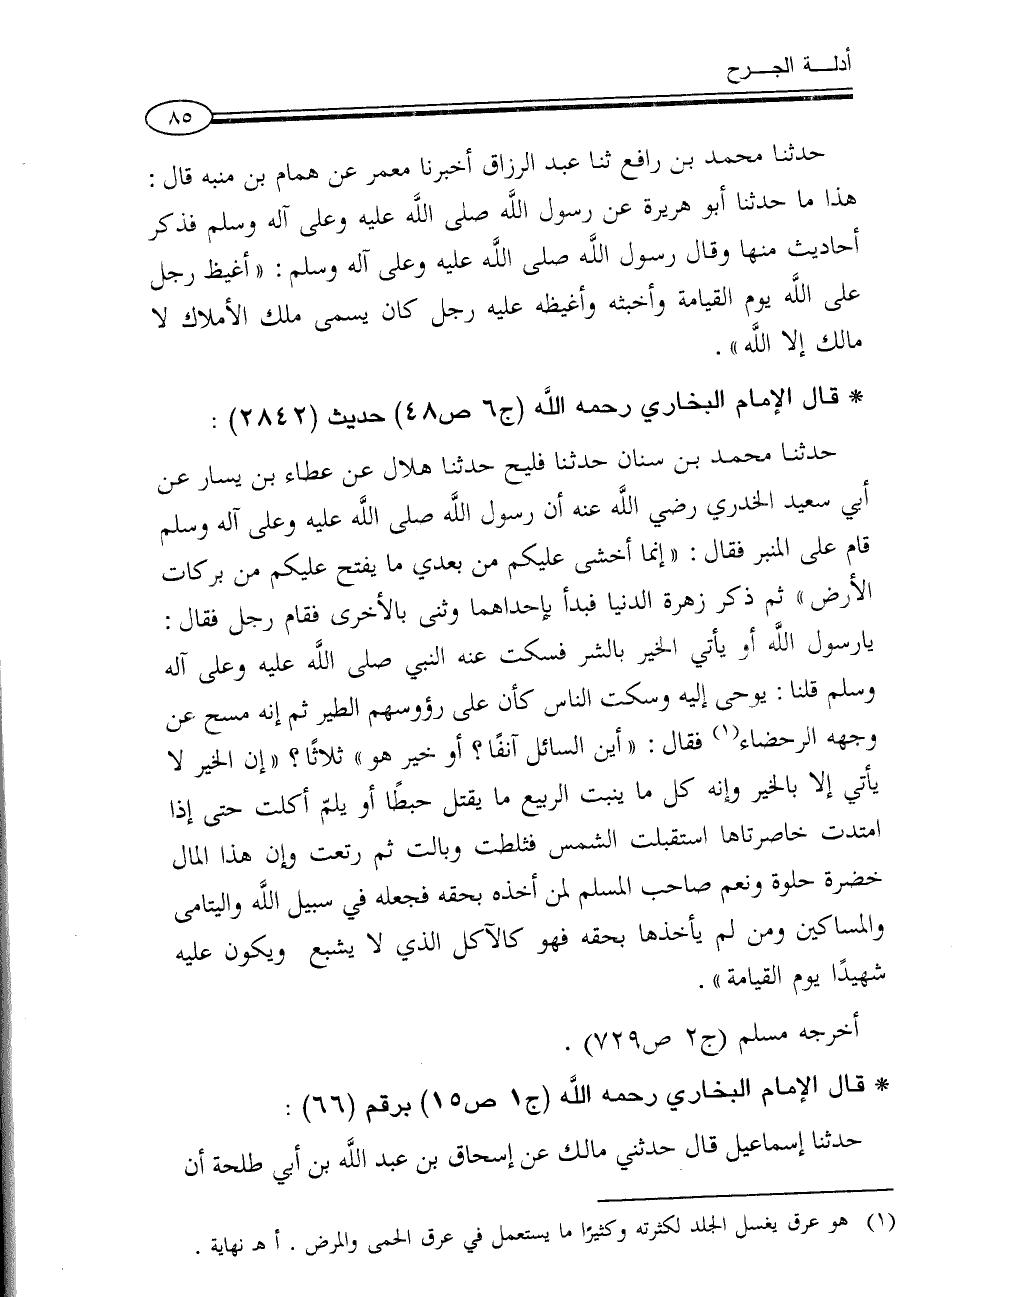 أدلـــة الجـــرح
٨٥
حدثنا محمد بن رافع ثنا عبد الرزاق أخبرنا معمر عن همام بن منبه قال :
هذا ما حدثنا أبو هريرة عن رسول اللَّه صلى اللَّه عليه وعلى آله وسلم فذكر
أحاديث منها وقال رسول اللَّه صلى اللَّه عليه وعلى آله وسلم : « أغيظ رجل
على اللَّه يوم القيامة وأخبثه وأغيظه عليه رجل كان يسمى ملك الأملاك لا
مالك إلا اللَّه » .
* قال الإمام البخاري رحمه اللَّه (ج٦ ص٤٨) حديث (٢٨٤٢) :
حدثنا محمد بن سنان حدثنا فليح حدثنا هلال عن عطاء بن يسار عن
أبي سعيد الخدري رضي اللَّه عنه أن رسول اللَّه صلى اللَّه عليه وعلى آله وسلم
قام على المنبر فقال : « إنما أخشى عليكم من بعدي ما يفتح عليكم من بركات
الأرض » ثم ذكر زهرة الدنيا فبدأ بإحداهما وثنى بالأخرى فقام رجل فقال :
يارسول اللَّه أو يأتي الخير بالشر فسكت عنه النبي صلى اللَّه عليه وعلى آله
وسلم قلنا : يوحى إليه وسكت الناس كأن على رؤوسهم الطير ثم إنه مسح عن
وجهه الرحضاء(١) فقال : « أين السائل آنفًا ؟ أو خير هو » ثلاثًا ؟ « إن الخير لا
يأتي إلا بالخير وإنه كل ما ينبت الربيع ما يقتل حبطًا أو يلمّ أكلت حتى إذا
امتدت خاصرتاها استقبلت الشمس فثلطت وبالت ثم رتعت وإن هذا المال
خضرة حلوة ونعم صاحب المسلم لمن أخذه بحقه فجعله في سبيل اللَّه واليتامى
والمساكين ومن لم يأخذها بحقه فهو كالآكل الذي لا يشبع ويكون عليه
شهيدًا يوم القيامة » .
أخرجه مسلم (ج٢ ص٧٢٩) .
* قال الإمام البخاري رحمه اللَّه (ج١ ص١٥) برقم (٦٦) :
حدثنا إسماعيل قال حدثني مالك عن إسحاق بن عبد اللَّه بن أبي طلحة أن
(١) هو عرق يغسل الجلد لكثرته وكثيرًا ما يستعمل في عرق الحمى والمرض . أ هـ نهاية .